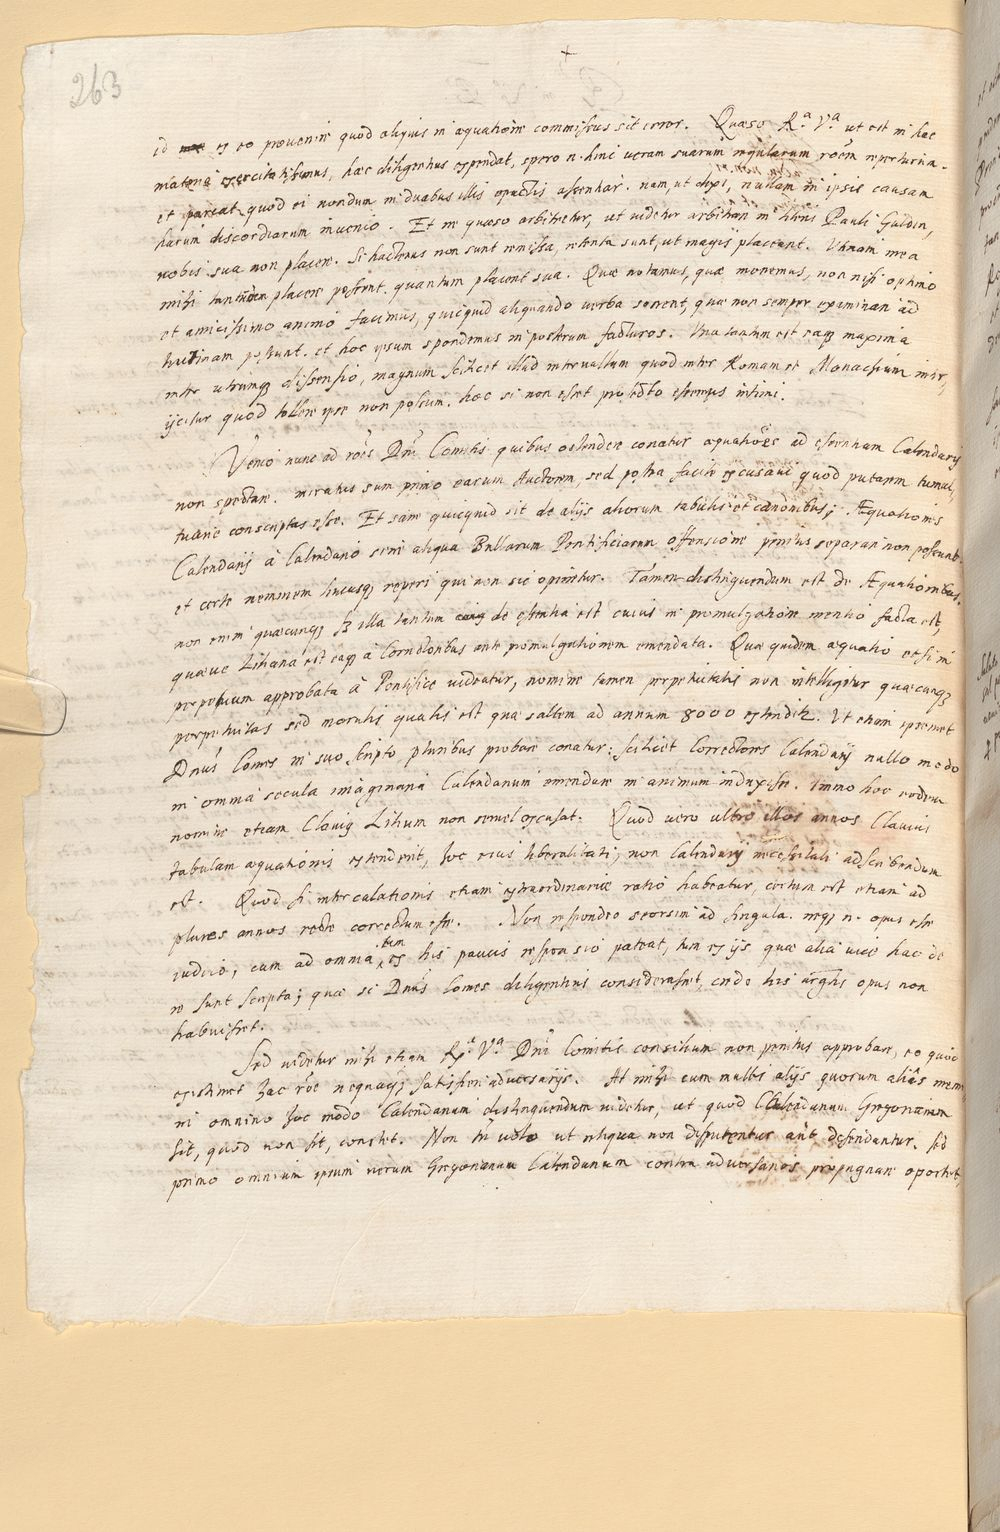 263
+
id ex eo provenire quod aliquis in aequatione commissus sit error. Quaeso R.ᵃ V.ᵃ ut est in hac
materia exercitatissimus, haec diligentius expendat, spero n. hinc veram suarum regularum roem reperturum
et pareat quod ei nondum in duabus illis epactis assentiar. nam, ut dixi, nullam in ipsis causam
harum discordiarum invenio. Et ne quaeso arbitretur, ut videtur arbitrari in litteris Pauli Guldin,
nobis sua non placere. Si hactenus non sunt remissa, retenta sunt, ut magis placerent. Utinam mea
mihi tantundem placere possent, quantum placent sua. Quae notamus, quae monemus, non nisi optimo
et amicissimo animo facimus, quicquid aliquando verba sonent, quae non semper examinari ad
trutinam possunt. et hoc ipsum spondemus in posterum facturos. Una tantum est eaq maxima
inter utrumq dissensio, magnum scilicet illud intervallum quod inter Romam et Monachium inter,
ijcitur quod tollere ipse non possum. hoc si non esset profecto essemus intimi.
Venio nunc ad roes Dni Comitis quibus ostendere conatur aequationes ad essentiam Calendarij
non spectare. miratus sum primo earum Auctorem, sed postea facile excusavi quod putarem tumul,
tuarie conscriptas esse. Et sane quicquid sit de alijs aliorum tabulis et canonibus; Aequationes
Calendarij à Calendario sine aliqua Bullarum Pontificiarum offensione penitus separari non possunt.
et certe neminem hucusq reperi qui non sic opinetur. Tamen distinguendum est de Aequationibus.
non enim quaecunq sed illa tantum de essentia est cuius in promulgatione mentio facta est,
quaeve Liliana est eaq à Correctoribus ante promulgationem emendata. Quae quidem aequatio etsi in
perpetuum approbata à Pontifice videatur, nomine tamen perpetuitatis non intelligitur quaecunq
perpetuitas sed moralis qualis est quae saltem ad annum 8000 extenditur. Ut etiam ipsemet
Dnus Comes in suo scripto pluribus probare conatur: scilicet Correctores Calendarij nullo modo
in omnia secula imaginaria Calendarium emendare in animum induxisse. Immo hoc eodem
nomine etiam Clavius Lilium non semel excusat. Quod vero ultro illos annos Clavius
tabulam aequationis extenderit, hoc eius liberalitati, non Calendarij necessitati adscribendum
est. Quod si intercalationis etiam extraordinariae ratio habeatur, certum est etiam ad
plures annos recte correctum esse. Non respondeo seorsim ad singula. neq n. opus esse
iudico, cum ad omnia tum ex his paucis responsio pateat, tum ex ijs quae alia vice hac de
re sunt scripta; quae si Dnus Comes diligentius considerasset, credo his argtis opus non
habuisset.
Sed videtur mihi etiam Rᵃ. Vᵃ Dni Comitis consilium non penitus approbare, eo quod
existimet hac roe nequaq satisfieri adversarijs. At mihi cum multis alijs quorum aliàs memi
ni omnino hoc modo Calendarium distinguendum videtur, ut quod Calendarium Gregorianum
sit, quod non sit, constet. Non tn volo ut reliqua non disputentur aut defendantur. sed
primo omnium ipsum verum Gregorianum Calendarium contra adversarios propugnare oportet,